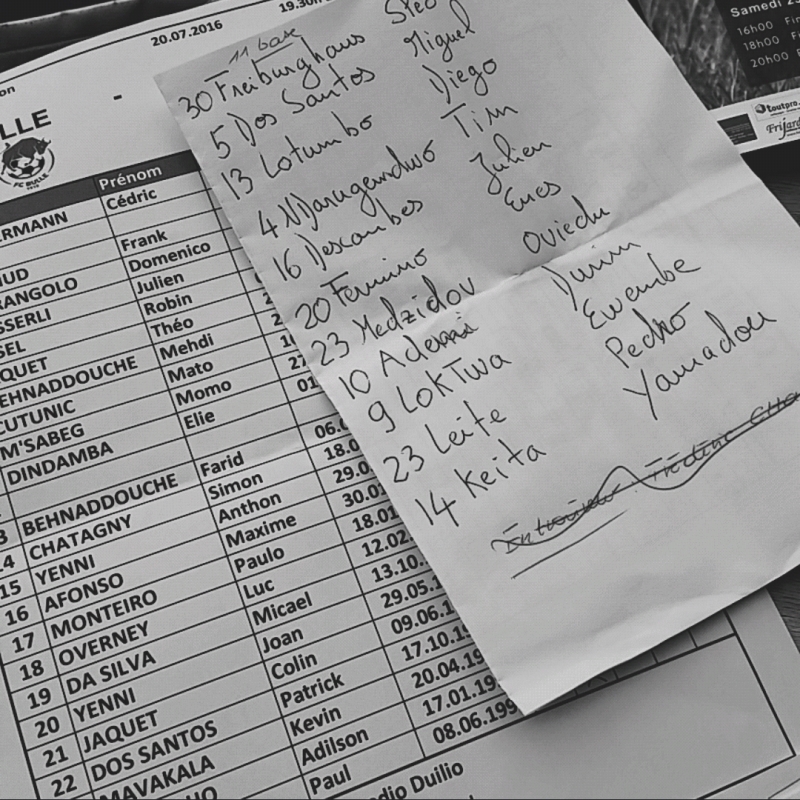 20.07.2016
19.30h
Samedi 23
16h00 Fin
18h00 Fi
20h00 F
toutpro.
Frifard
on
LLE
-
FC BULLE
Prénom
ERMANN Cédric
UD Frank
RANGOLO Domenico
SSERLI Julien
SEL Robin
QUET Théo
EHNADDOUCHE Mehdi
CUTUNIC Mato
M'SABEG Momo
DINDAMBA Elie
3 BEHNADDOUCHE Farid 06.0
14 CHATAGNY Simon 18.0
15 YENNI Anthon 29.0
16 AFONSO Maxime 30.01
17 MONTEIRO Paulo 18.01
18 OVERNEY Luc 12.02
19 DA SILVA Micael 13.10.
20 YENNI Joan 29.05.1
21 JAQUET Colin 09.06.1
22 DOS SANTOS Patrick 17.10.19
MAVAKALA Kevin 20.04.19
HO Adilson 17.01.19
Paul 08.06.199
dio Duilio
11 base
30 Freiburghaus Steo
5 Dos Santos Miguel
13 Lotumbo Diego
4 NDarugendwo Tim
16 Descombes Julien
20 Fennino Enes
23 Medzidov Oviedu
10 Ademi Durim
9 LokTwa Ewembe
23 Leite Pedro
14 Keita Yamadou